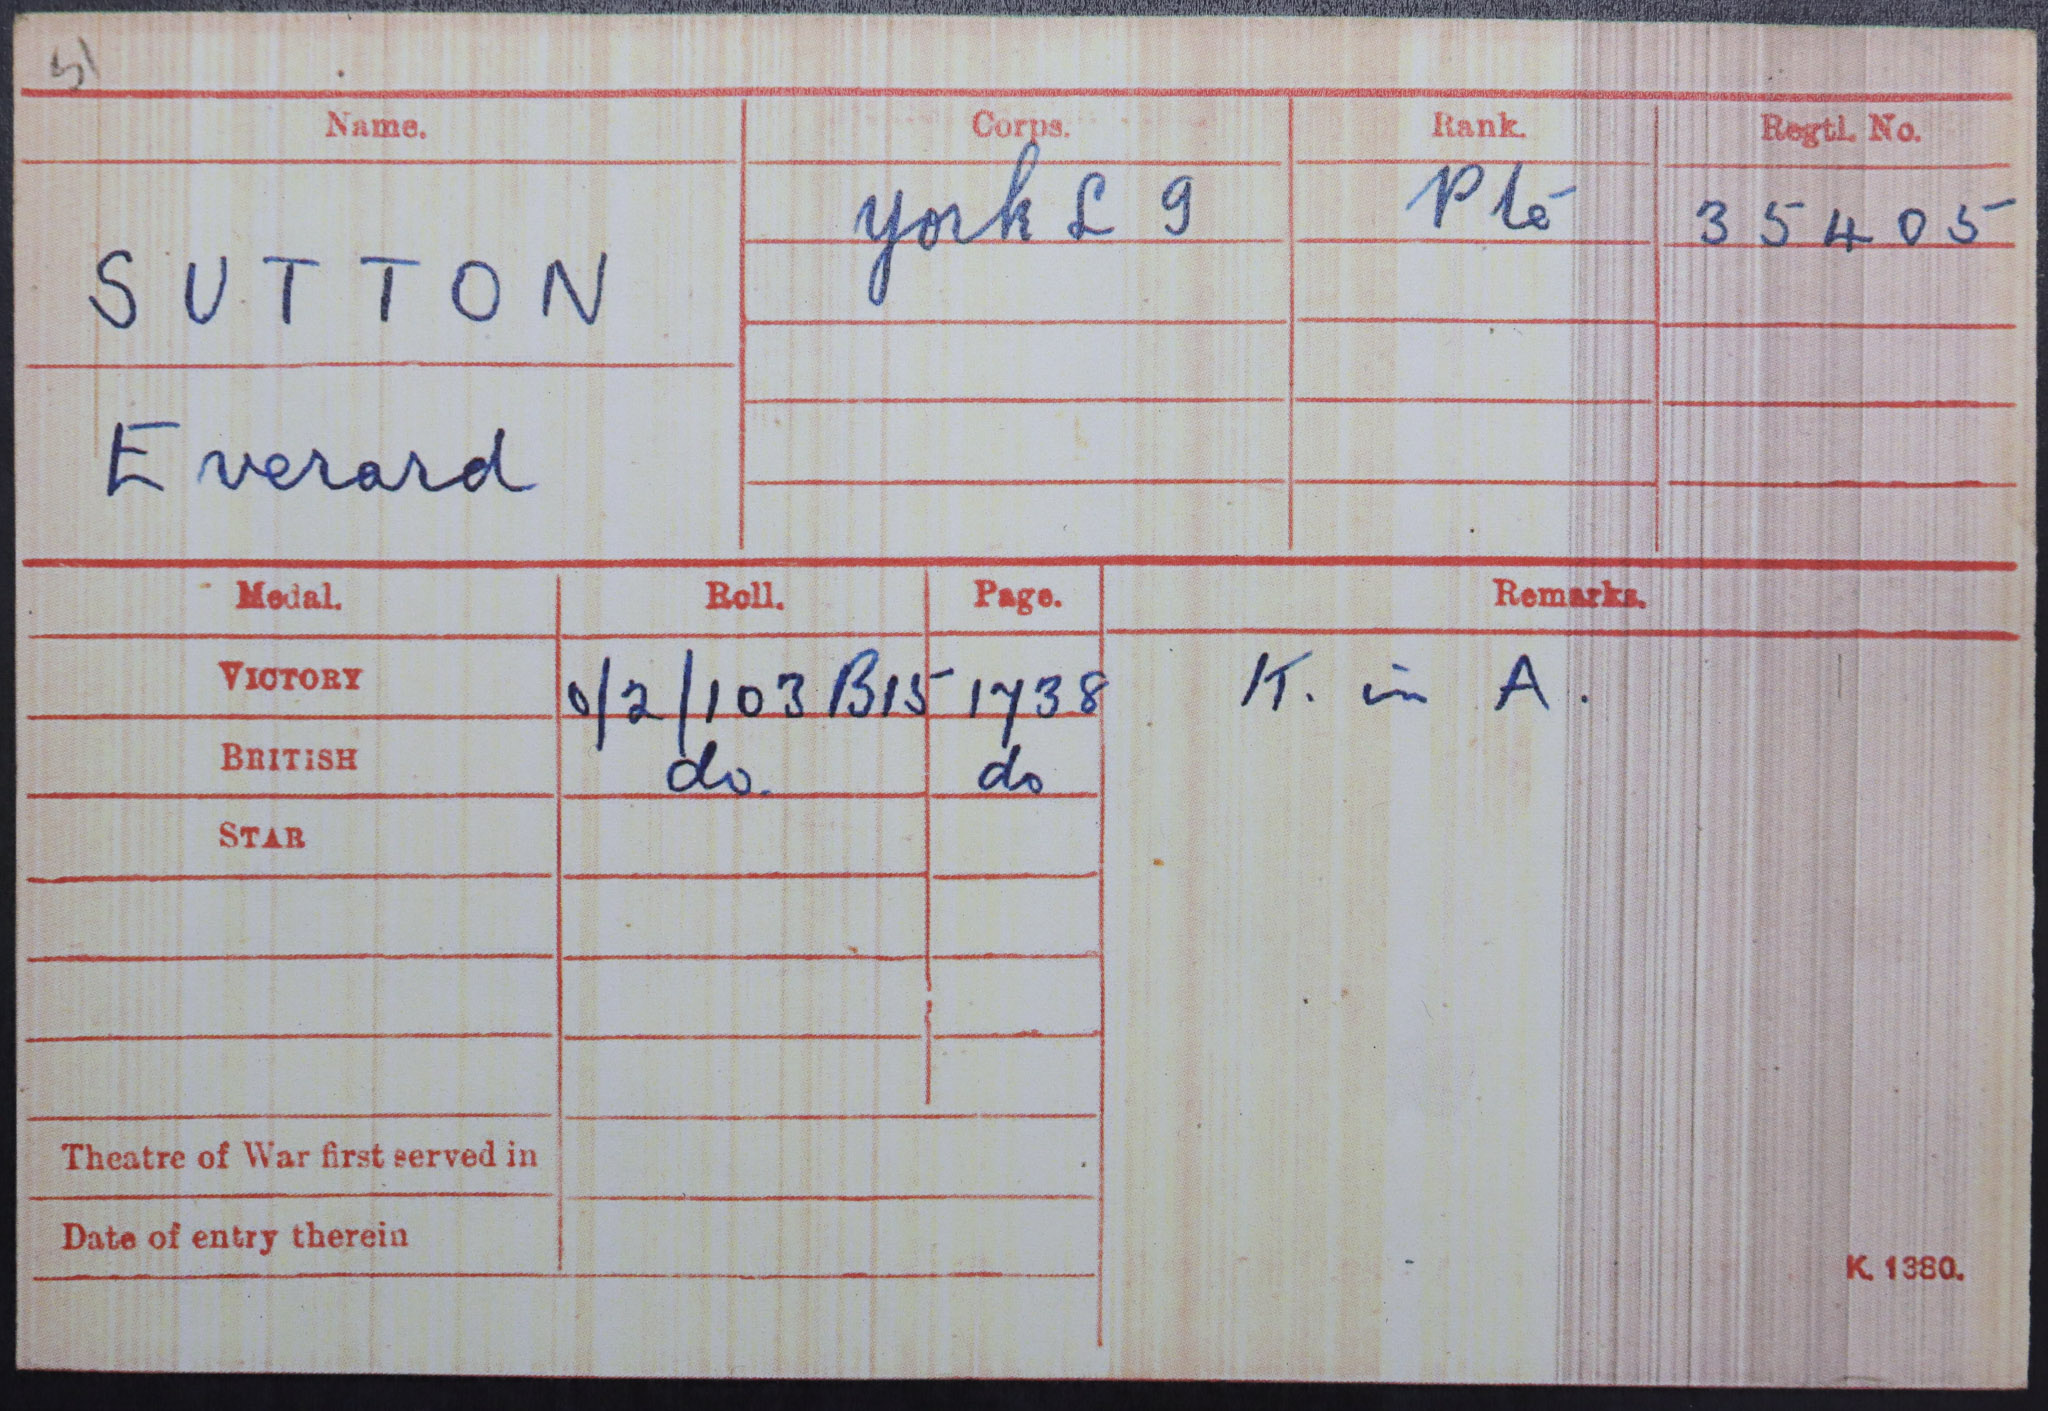 Name. Corps. Rank. Regtl. No.
York L 9 Pte 35405
SUTTON
Everard
Medal. Roll. Page. Remarks.
VICTORY 0/2/103 B15 1738 K. in A.
BRITISH do. do
STAR
Theatre of War first served in
Date of entry therein
K. 1380.